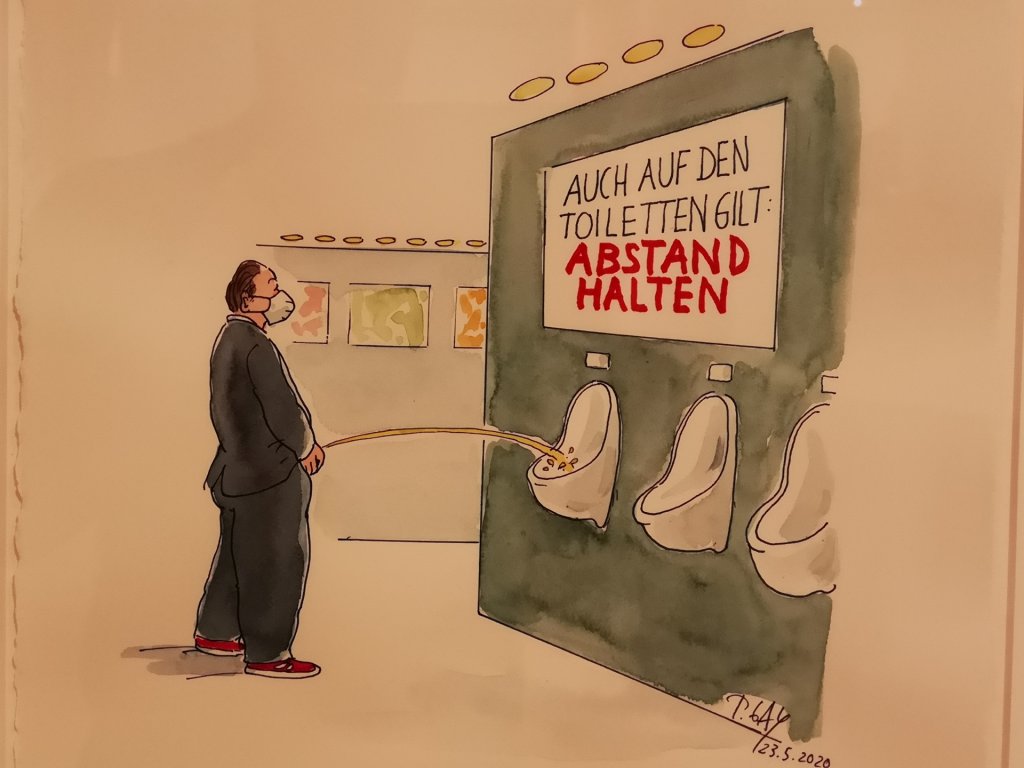 AUCH AUF DEN
TOILETTEN GILT:
ABSTAND
HALTEN
P. GAY
23.5.2020